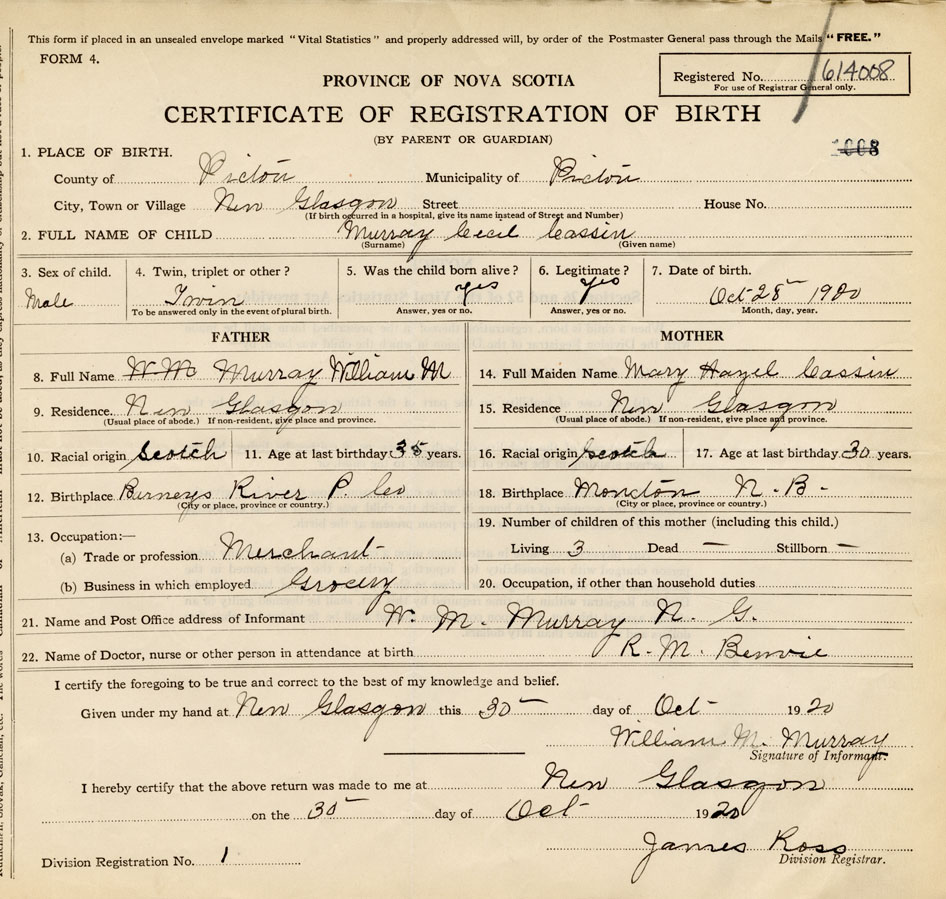 This form if placed in an unsealed envelope marked "Vital Statistics" and properly addressed will, by order of the Postmaster General pass through the Mails "FREE."
FORM 4.
PROVINCE OF NOVA SCOTIA
Registered No. 614008
For use of Registrar General only.
CERTIFICATE OF REGISTRATION OF BIRTH
(BY PARENT OR GUARDIAN)
1. PLACE OF BIRTH.
County of Pictou Municipality of Pictou
City, Town or Village New Glasgow Street House No.
(If birth occurred in a hospital, give its name instead of Street and Number)
2. FULL NAME OF CHILD Murray Cecil Cassin
(Surname) (Given name)
3. Sex of child. 4. Twin, triplet or other? 5. Was the child born alive? 6. Legitimate? 7. Date of birth.
Male Twin yes yes Oct 28 1920
To be answered only in the event of plural birth. Answer, yes or no. Answer, yes or no. Month, day, year.
FATHER MOTHER
8. Full Name W M Murray William M 14. Full Maiden Name Mary Hazel Cassin
9. Residence. New Glasgow 15. Residence New Glasgow
(Usual place of abode.) If non-resident, give place and province. (Usual place of abode.) If non-resident, give place and province.
10. Racial origin Scotch 11. Age at last birthday 35 years. 16. Racial origin Scotch 17. Age at last birthday 30 years.
12. Birthplace Barneys River P. Co 18. Birthplace Moncton N.B-
(City or place, province or country.) (City or place, province or country.)
19. Number of children of this mother (including this child.)
13. Occupation:—
(a) Trade or profession Merchant Living 3 Dead — Stillborn —
(b) Business in which employed Grocery 20. Occupation, if other than household duties
21. Name and Post Office address of Informant W. M. Murray N. G.
22. Name of Doctor, nurse or other person in attendance at birth R. M. Benvie
I certify the foregoing to be true and correct to the best of my knowledge and belief.
Given under my hand at New Glasgow this 30 day of Oct 1920
William M. Murray
Signature of Informant.
I hereby certify that the above return was made to me at New Glasgow
on the 30 day of Oct 1920
James Ross
Division Registration No. 1 Division Registrar.